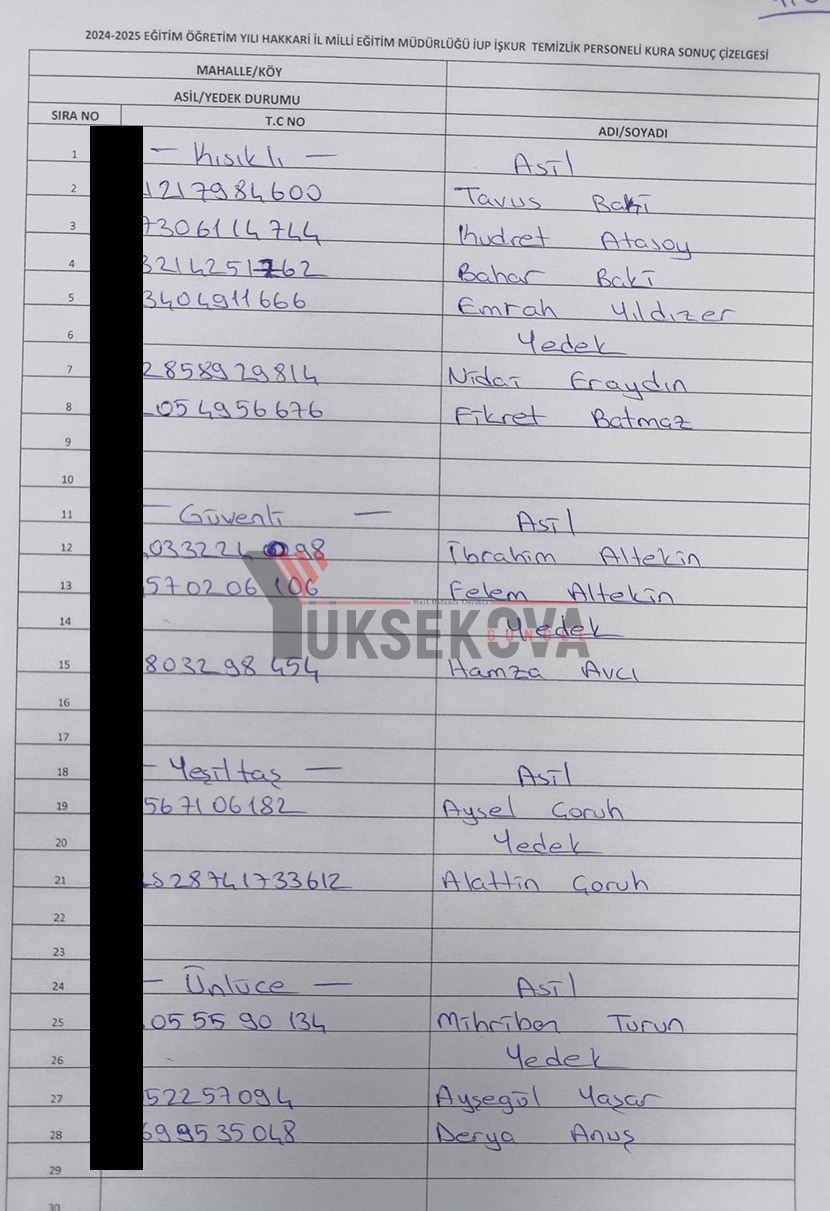 2024-2025 EĞİTİM ÖĞRETİM YILI HAKKARİ İL MİLLİ EĞİTİM MÜDÜRLÜĞÜ İUP İŞKUR TEMİZLİK PERSONELİ KURA SONUÇ ÇİZELGESİ
MAHALLE/KÖY
ASİL/YEDEK DURUMU
SIRA NO T.C NO ADI/SOYADI
1 — Kısıklı — Asil
2 1217984600 Tavus Baki
3 7306114744 Kudret Atasoy
4 3214251762 Bahar Baki
5 3404911666 Emrah Yıldızer
6 Yedek
7 2858929814 Nidai Eraydın
8 054956676 Fikret Batmaz
9
10
11 — Güvenli — Asil
12 033221 098 İbrahim Altekin
13 570206106 Felem Altekin
14 Yedek
YÜKSEKOVA
GÜNCEL
15 803298454 Hamza Avcı
16
17
18 — Yeşiltaş — Asil
19 567106182 Aysel Çoruh
20 Yedek
21 28741733612 Alattin Çoruh
22
23
24 — Ünlüce — Asil
25 05 55 90 134 Mihriban Turun
26 Yedek
27 52257094 Ayşegül Yaşar
28 699535048 Derya Anuş
29
30